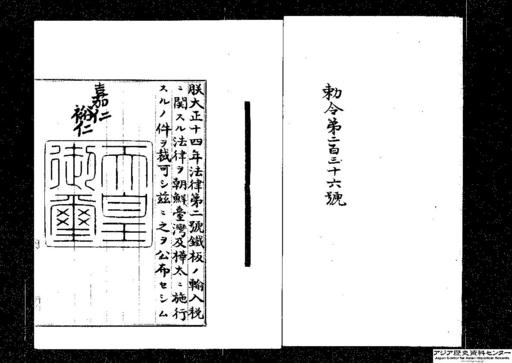 勅令第二百三十六號
朕大正十四年法律第二號鐵板ノ輸入税
ニ関スル法律ヲ朝鮮臺灣及樺太ニ施行
スルノ件ヲ裁可シ茲ニ之ヲ公布セシム
嘉仁
裕仁
天皇
御璽
アジア歴史資料センター
Japan Center for Asian Historical Records